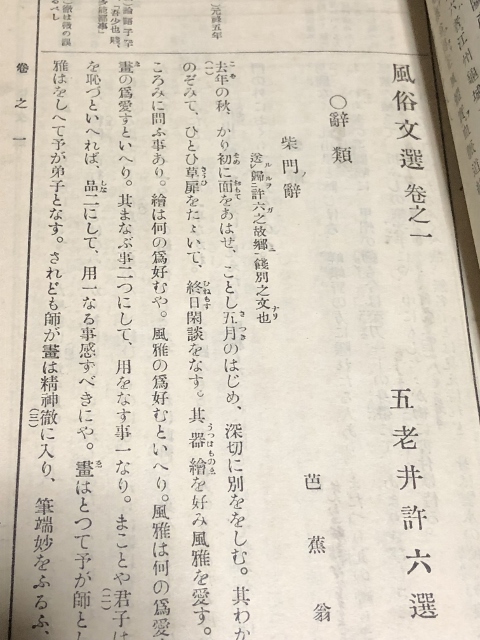 風俗文選 卷之一
五老井許六選
○辭類
柴門ノ辭
芭蕉翁
送ルル歸ルヲ許六ガ之故鄕ニ餞別之文也ナリ
去年の秋、かり初に面をあはせ、ことし五月のはじめ、深切に別ををしむ。其わか
のぞみて、ひとひ草扉をたゝいて、終日閑談をなす。其器繪を好み風雅を愛す。
ころみに問ふ事あり。繪は何の爲好むや。風雅の爲好むといへり。風雅は何の爲愛
畫の爲愛すといへり。其まなぶ事二つにして、用をなす事一なり。まことや君子は
を恥づといへれば、品二にして、用一なる事感ずべきにや。畫はとつて予が師とし
雅はをしへて予が弟子となす。されども師が畫は精神徹に入り、筆端妙をふるふ、
(一)
(二)
(三)
元祿五年
卷之一